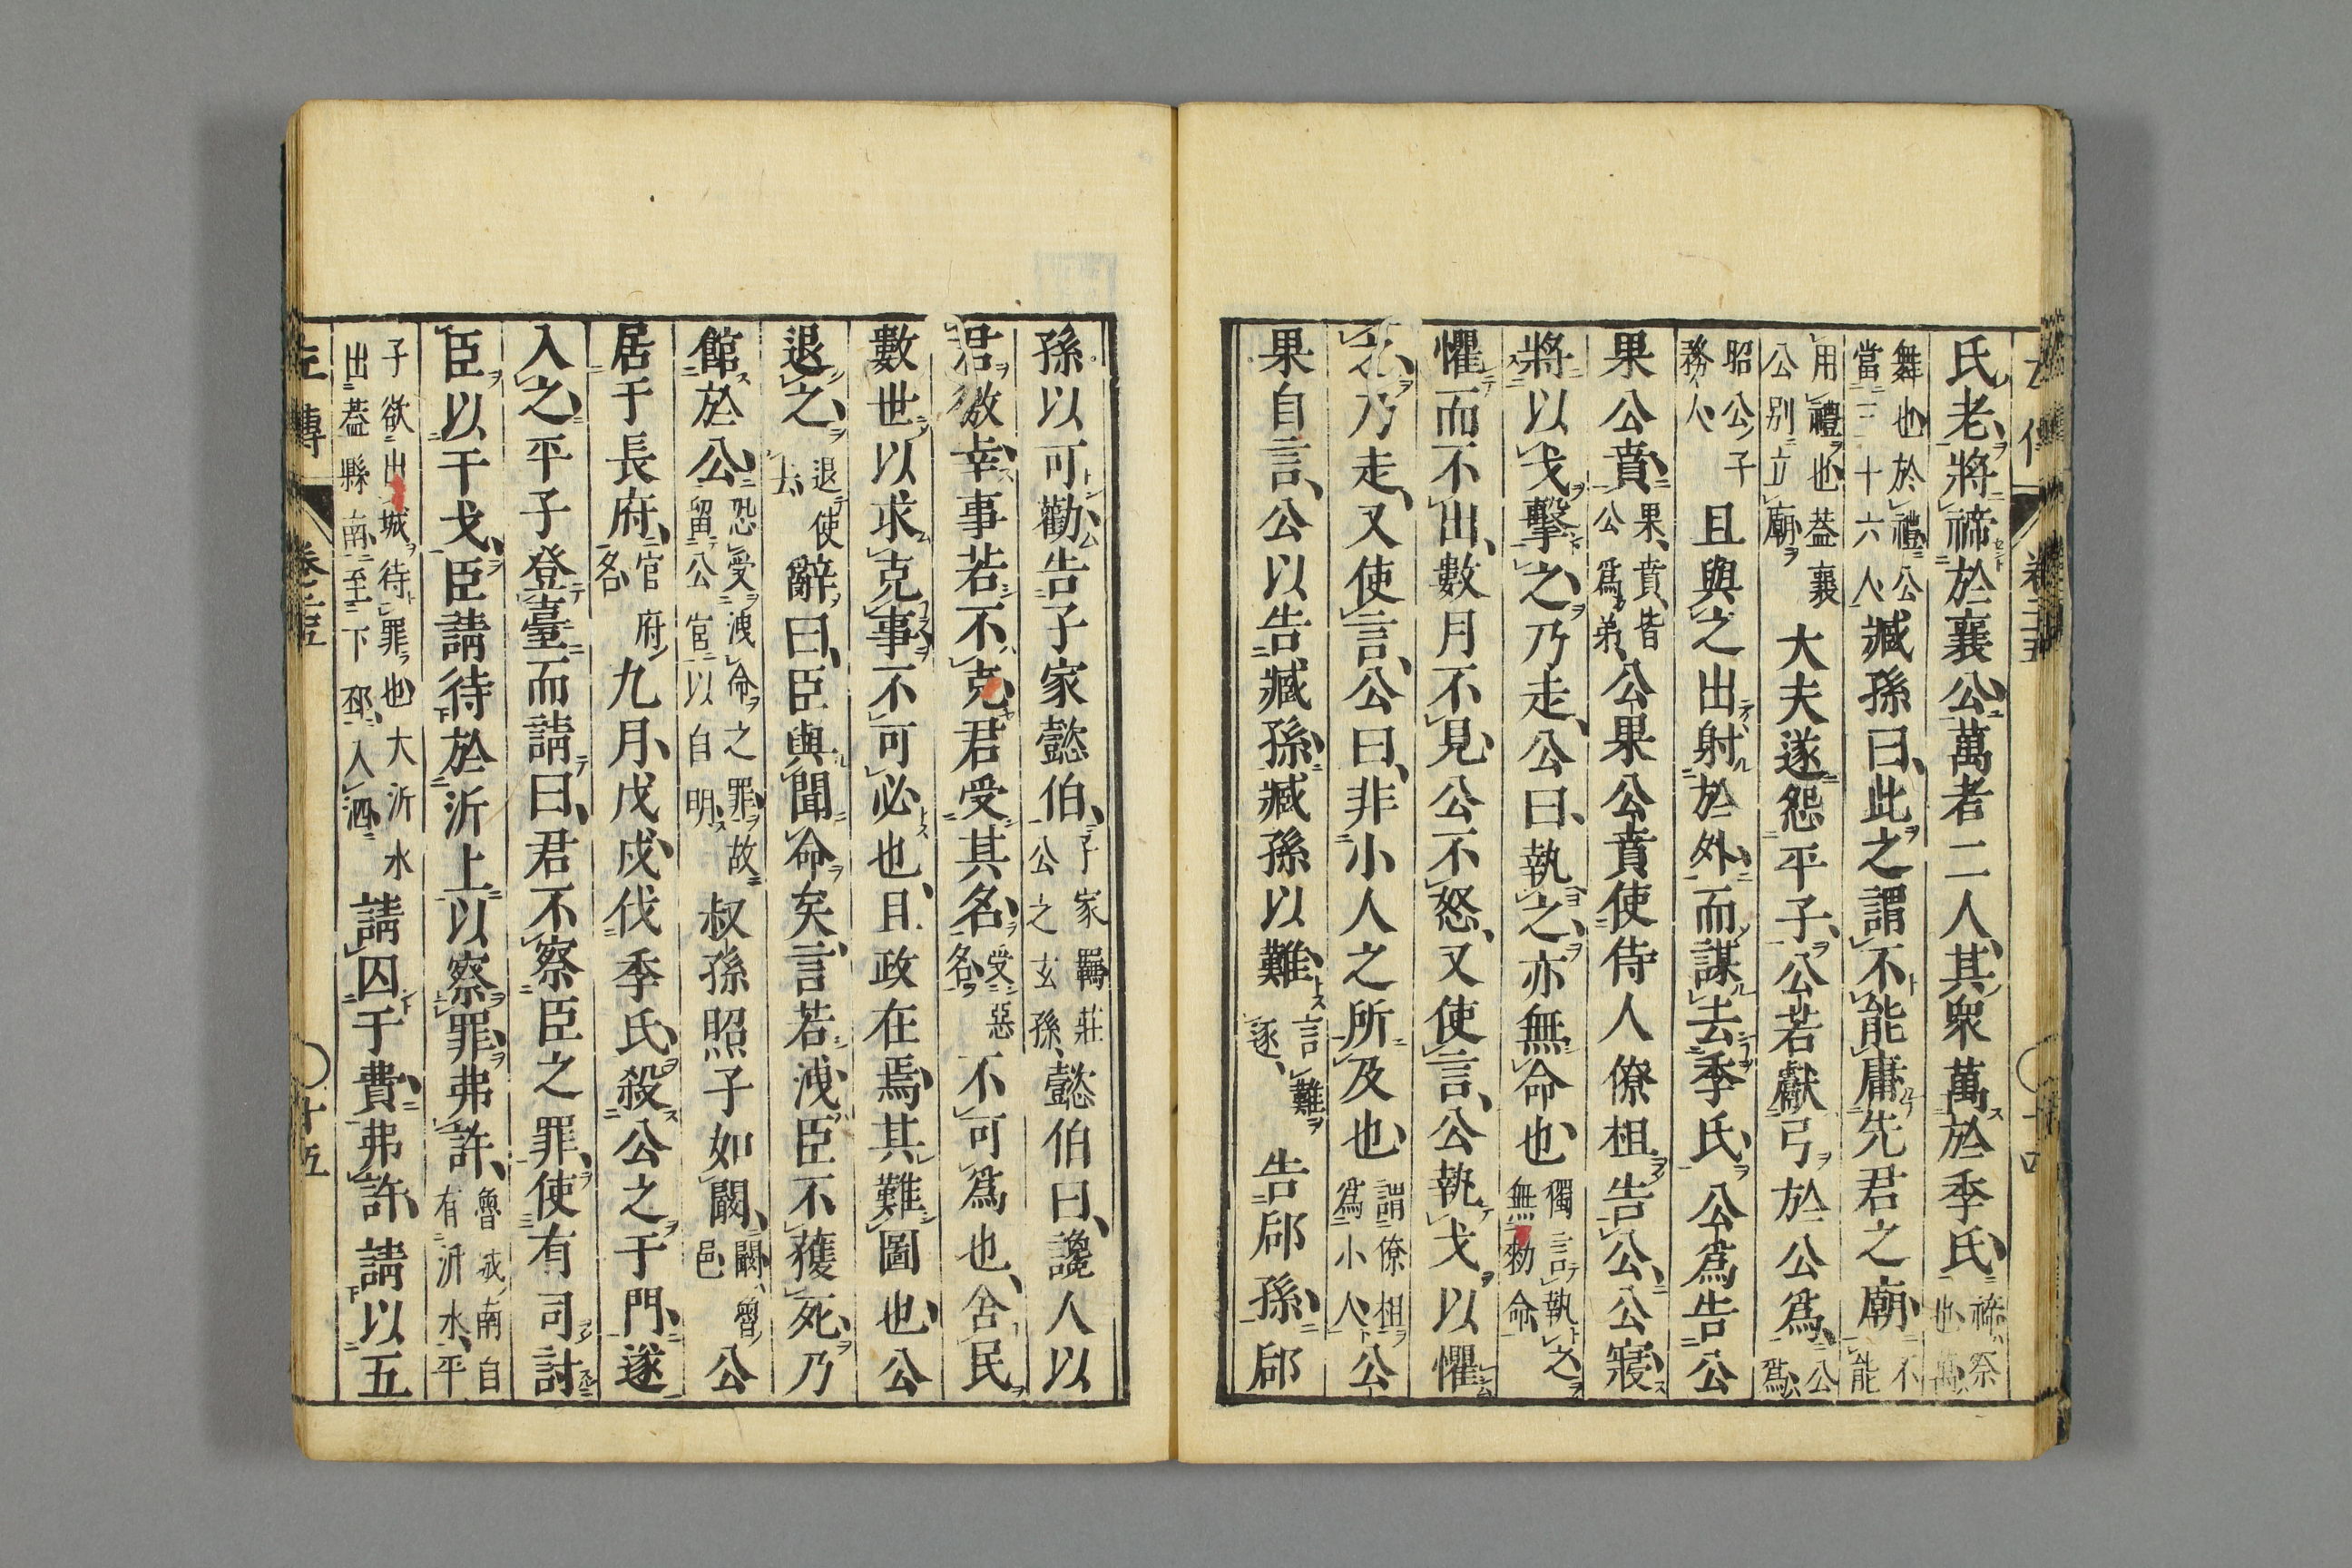 左傳 卷二十五 十四
氏老將禘於襄公萬者二人其衆萬於季氏禘祭也萬
舞也於禮公當三十六人臧孫曰此之謂不能庸先君之廟不能
用禮也葢襄公別立廟大夫遂怨平子公若獻弓於公爲公爲
昭公子務人且與之出射於外而謀去季氏公爲告公
果公賁果賁皆公爲弟公果公賁使侍人僚柤告公公寢
將以戈擊之乃走公曰執之亦無命也獨言執之無勑命
懼而不出數月不見公不怒又使言公執戈以懼
之乃走又使言公曰非小人之所及也謂僚柤爲小人公
果自言公以告臧孫臧孫以難言難逐告郈孫郈
孫以可勸告子家懿伯子家羈莊公之玄孫懿伯曰讒人以
君徼幸事若不克君受其名受惡名不可爲也舍民
數世以求克事不可必也且政在焉其難圖也公
退之退使去辭曰臣與聞命矣言若洩臣不獲死乃
館於公恐受洩命之罪故留公宮以自明叔孫昭子如闞闞魯邑公
居于長府官府名九月戊戌伐季氏殺公之于門遂
入之平子登臺而請曰君不察臣之罪使有司討
臣以干戈臣請待於沂上以察罪弗許魯城南自有沂水平
子欲出城待罪也大沂水出葢縣南至下邳入泗請囚于費弗許請以五
左傳 卷二十五 十五